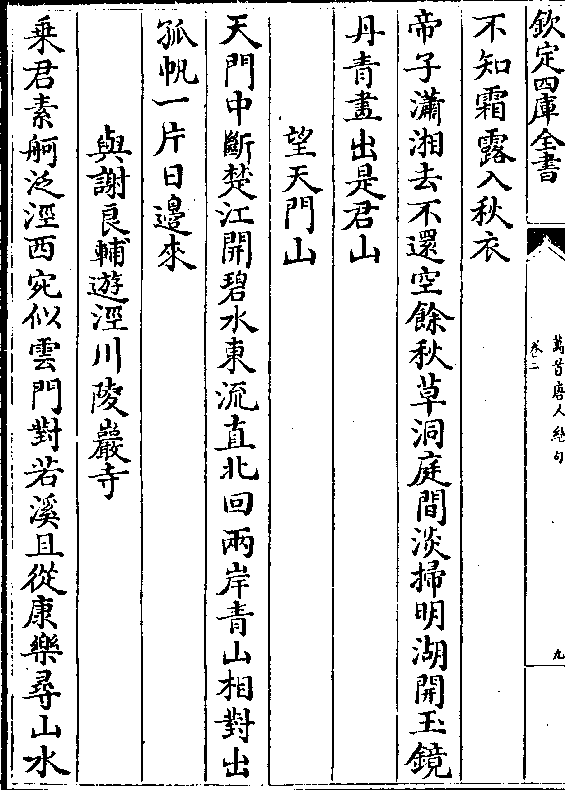 欽定四庫全書
萬首唐人絶句
卷二
九
不知霜露入秋衣
帝子瀟湘去不還空餘秋草洞庭間淡掃明湖開玉鏡
丹青畫出是君山
望天門山
天門中斷楚江開碧水東流直北回兩岸青山相對出
孤帆一片日邊來
與謝良輔遊涇川陵巖寺
乘君素舸泛涇西宛似雲門對若溪且從康樂尋山水